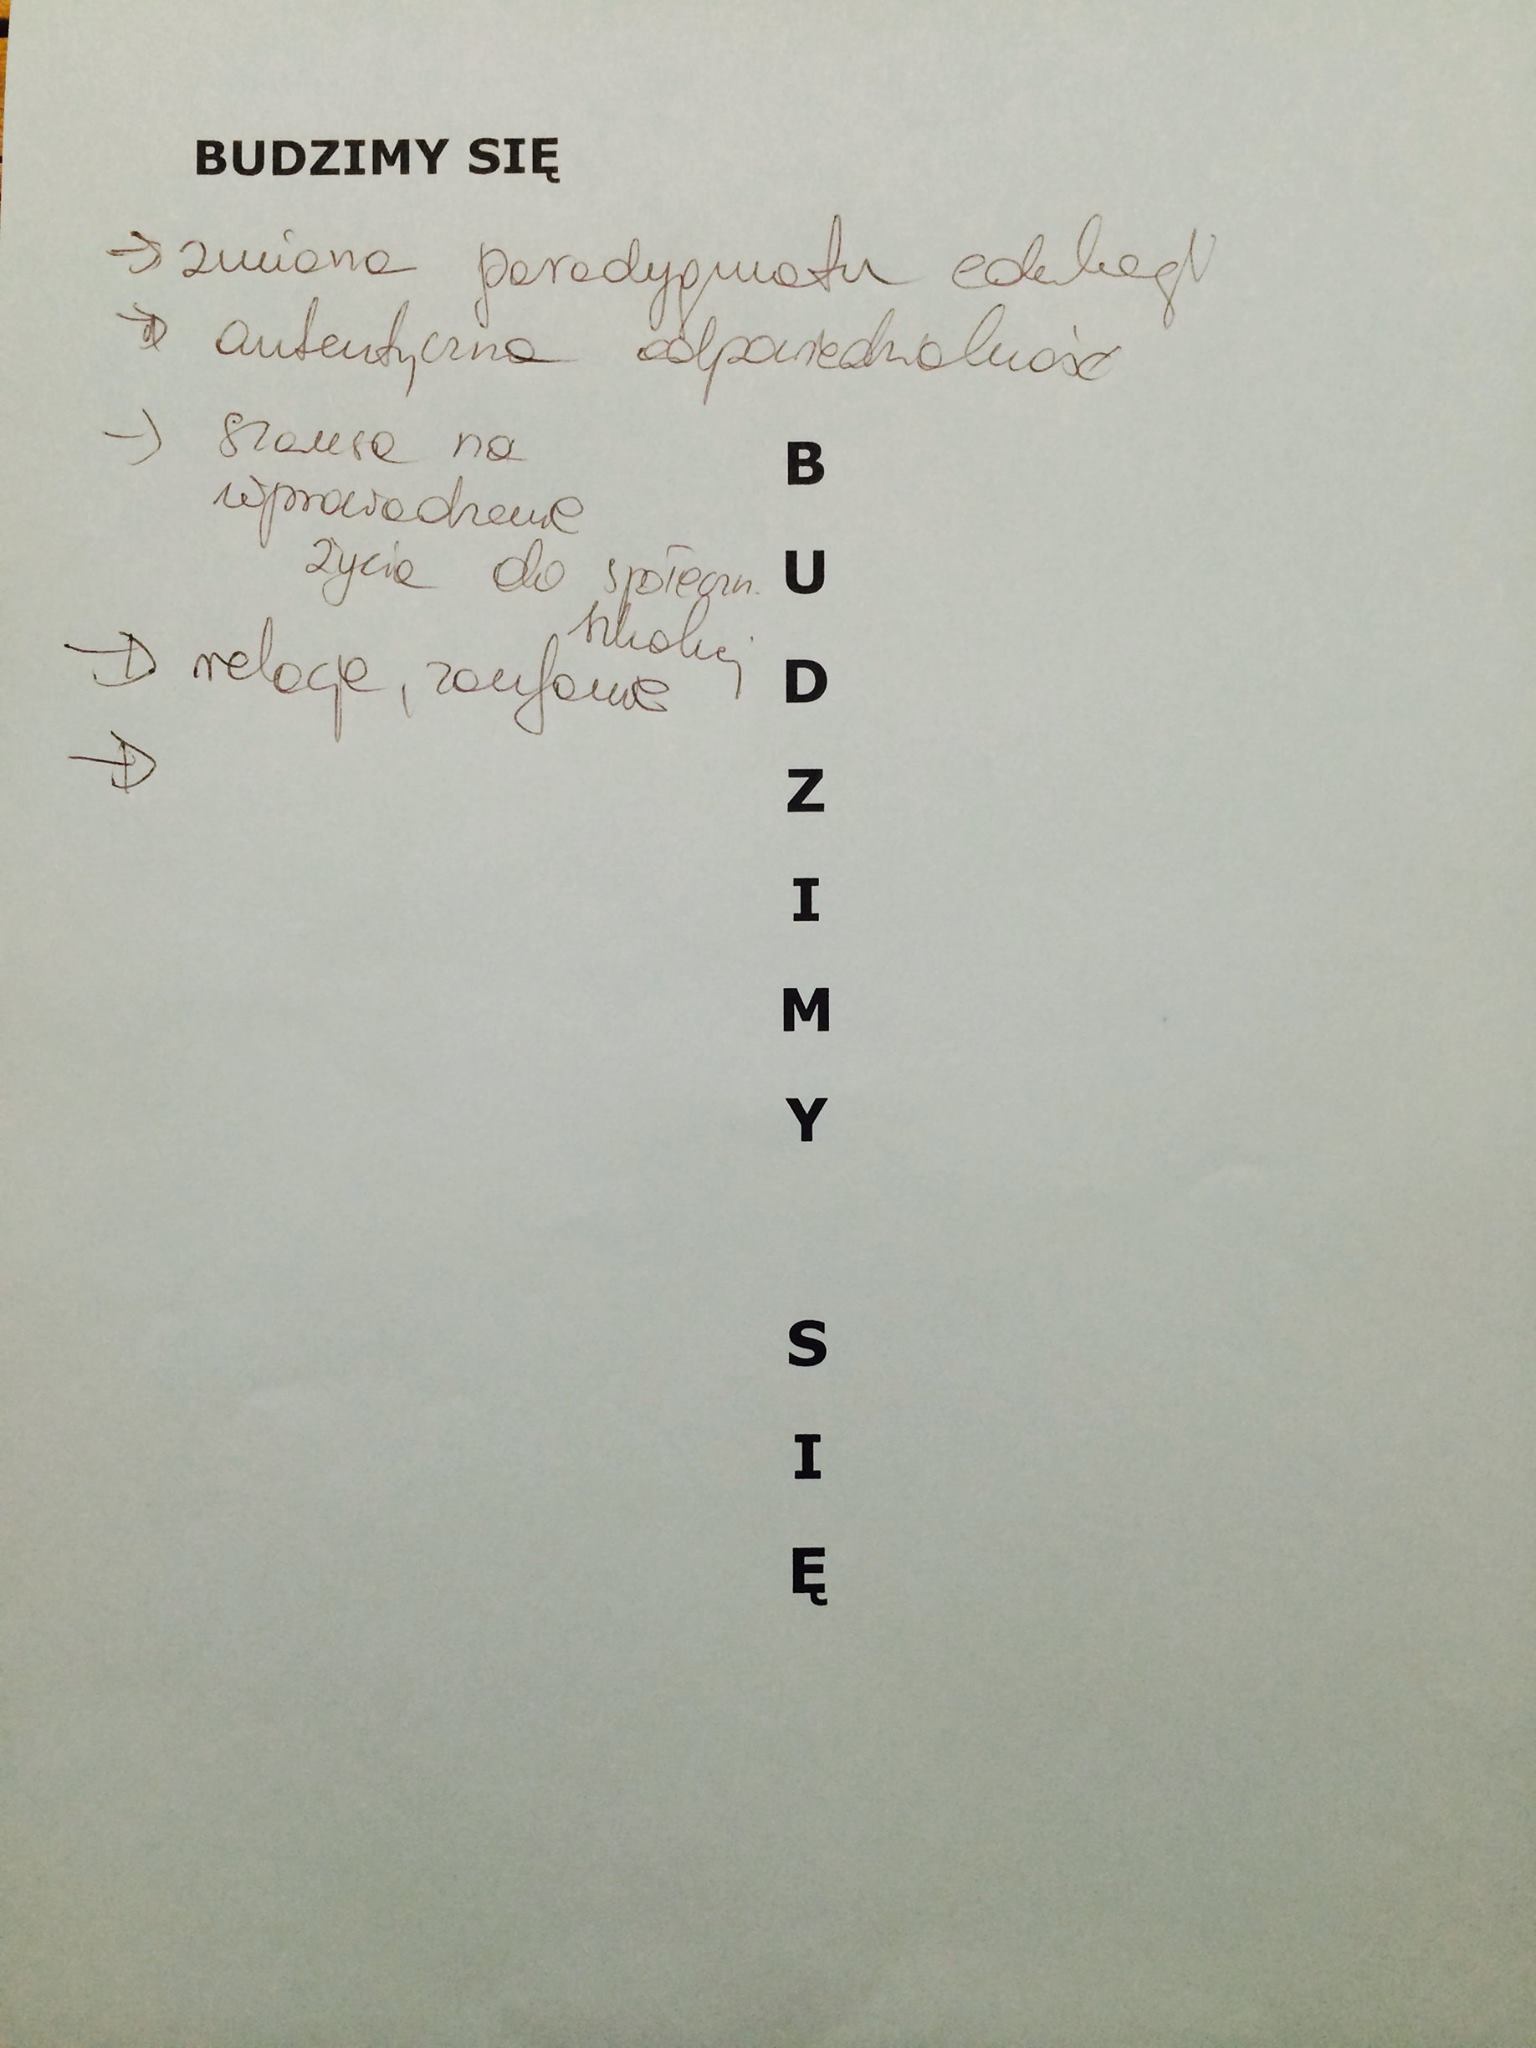 BUDZIMY SIĘ
→ zmiana paradygmatu edukacji
→ autentyczna odpowiedzialność
→ szansa na
wprowadzenie
życia do społeczn.
szkolnej
→ relacje, zaufanie
→
B
U
D
Z
I
M
Y
S
I
Ę